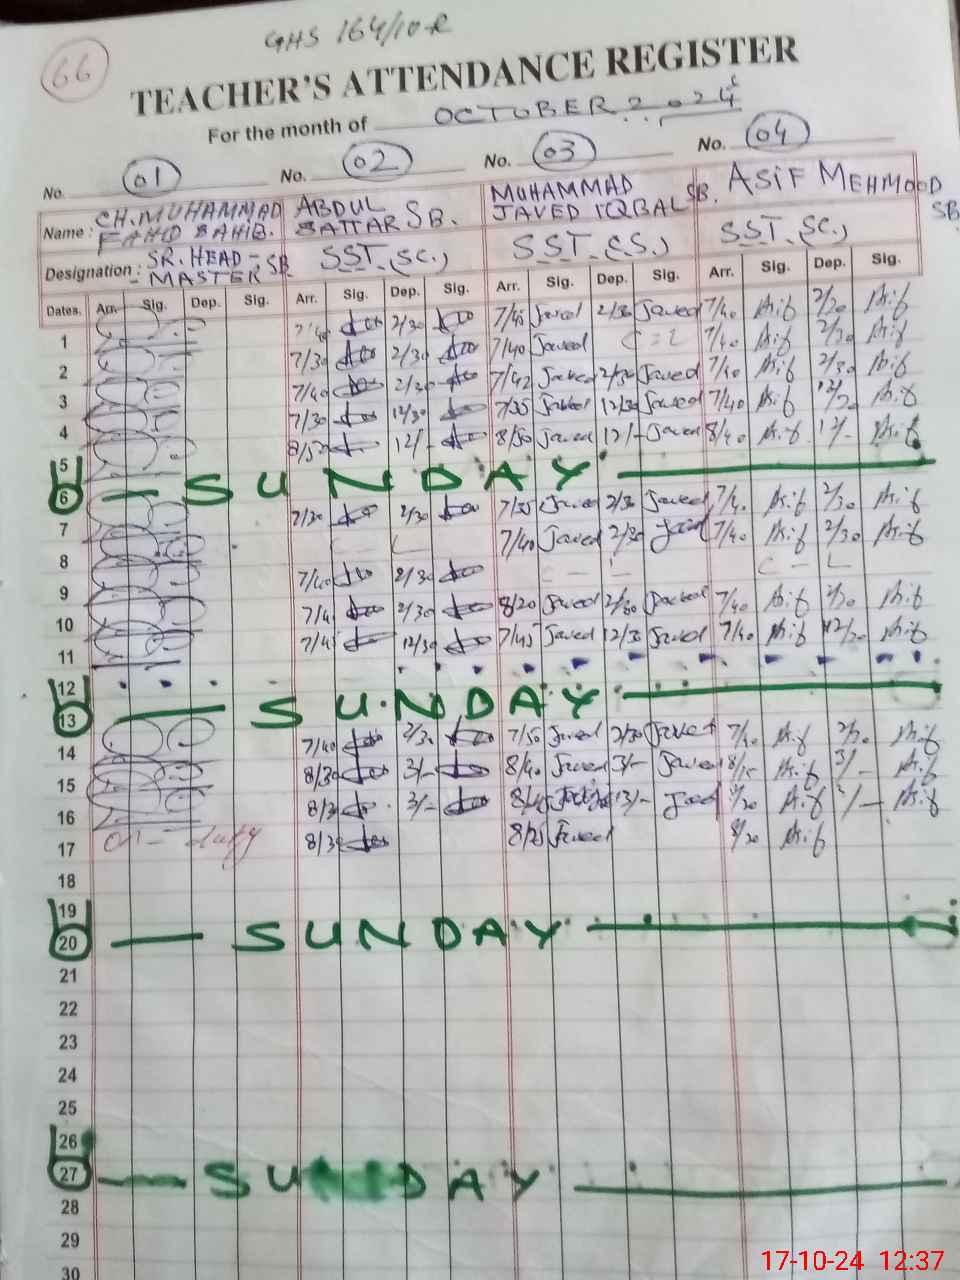 66
GHS 164/10-R
TEACHER'S ATTENDANCE REGISTER
For the month of OCTOBER 2024
No. 01 No. 02 No. 03 No. 04
Name : CH. MUHAMMAD FAHD SAHIB. ABDUL SATTAR SB. MUHAMMAD JAVED IQBAL SB. ASIF MEHMOOD SB
Designation : SR. HEAD-MASTER SB SST (SC.) SST (S.) SST (SC.)
Dates. Arr. Sig. Dep. Sig. Arr. Sig. Dep. Sig. Arr. Sig. Dep. Sig. Arr. Sig. Dep. Sig.
1 7/40 2/30 7/45 Javed 2/30 Javed 7/40 Asif 2/30 Asif
2 7/30 2/30 7/40 Javed 7/40 Asif 2/30 Asif
3 7/40 2/30 7/42 Javed 2/30 Javed 7/40 Asif 2/30 Asif
4 7/30 12/30 7/35 Javed 12/30 Javed 7/40 Asif Asif
5 8/50 12/- 8/50 Javed 12/- Javed 8/40 Asif 12/- Asif
6 SUNDAY
7 7/30 2/30 7/35 Javed 2/30 Javed 7/40 Asif 2/30 Asif
8 7/40 Javed 2/30 7/40 Asif 2/30 Asif
9 7/40 2/30 C - L
10 2/30 8/20 Javed 2/30 Javed 7/40 Asif 2/30 Asif
11 7/45 12/30 7/45 Javed 12/30 Javed 7/40 Asif Asif
12
13 SUNDAY
14 7/40 2/30 7/50 Javed 2/30 Javed 7/40 Asif 2/30 Asif
15 8/30 3/- 8/40 Javed 3/- Javed 8/15 Asif 3/- Asif
16 8/30 3/- 8/45 3/- Asif Asif
17 on - duty 8/30 8/25 Javed 8/20 Asif
18
19
20 SUNDAY
21
22
23
24
25
26
27 SUNDAY
28
29
30
17-10-24 12:37